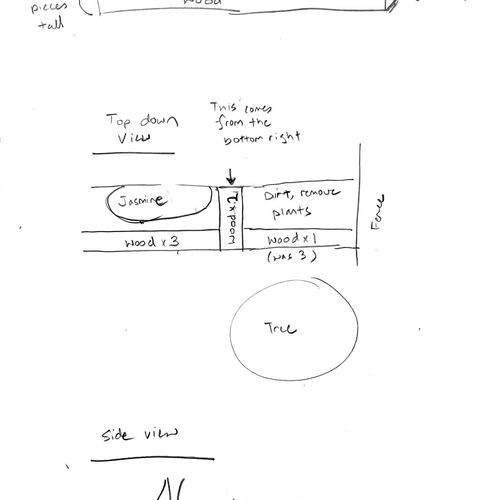 pieces
tall
wood
Top down
View
This comes
from the
bottom right
Jasmine
wood x 2
Dirt, remove
plants
Fence
wood x 3
wood x 1
(was 3)
Tree
side view